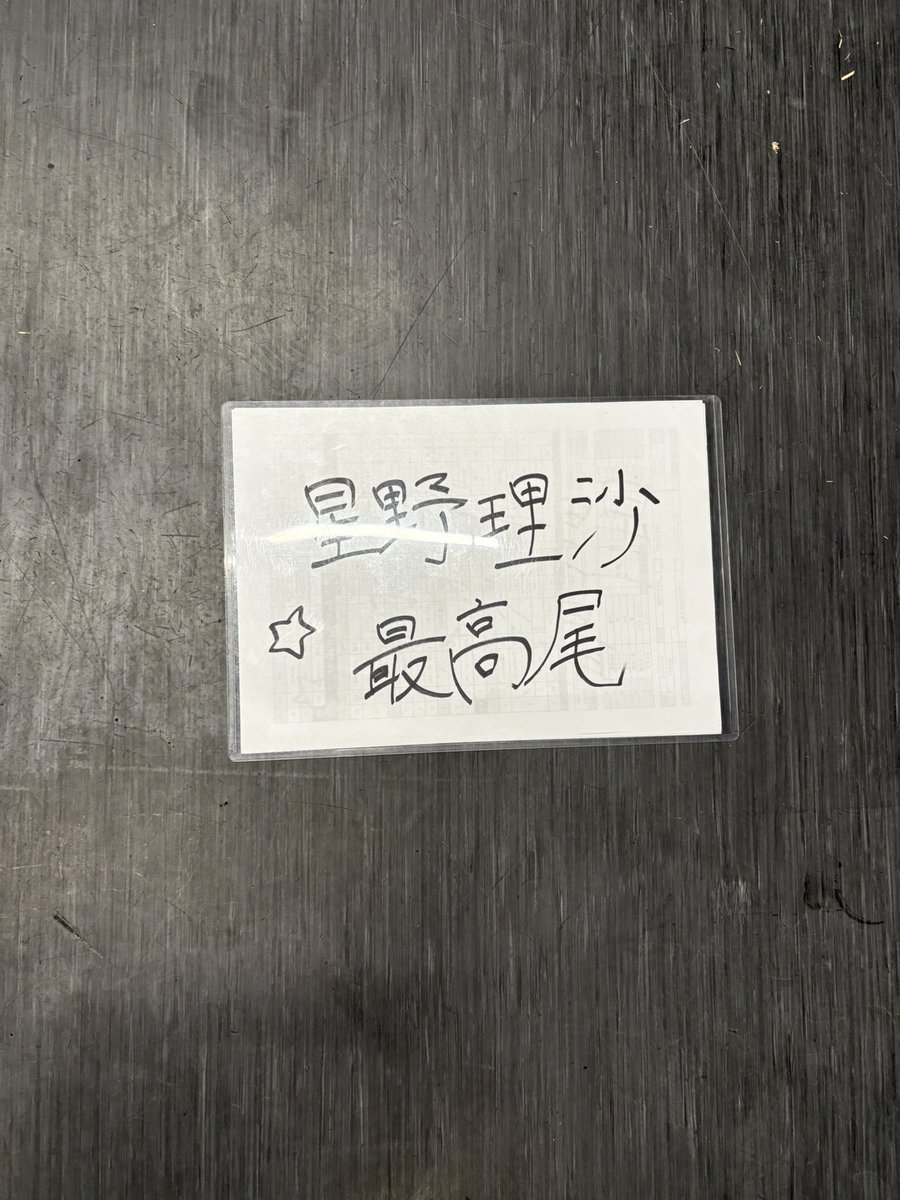 星野理沙
☆ 最高尾